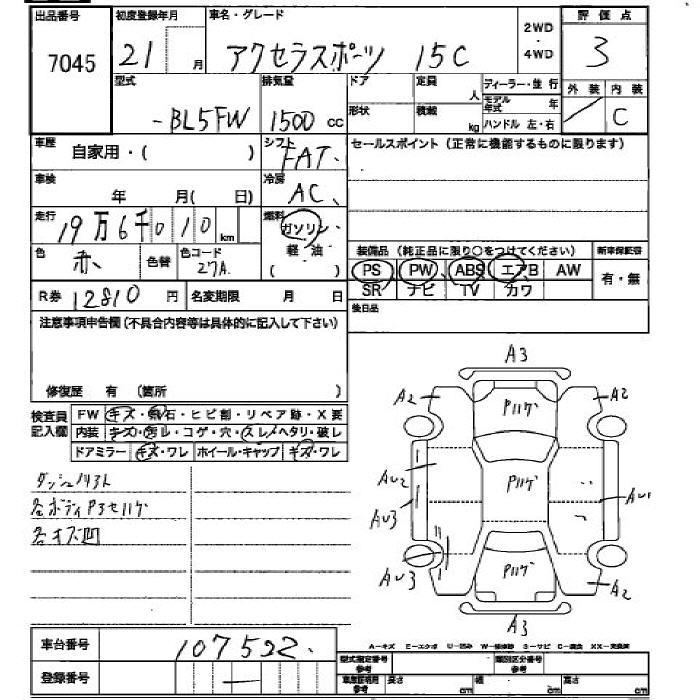 出品番号 初度登録年月 車名・グレード 2WD・4WD 評価点
7045 21 月 アクセラスポーツ 15C 3
型式 排気量 ドア 定員 人 ディーラー・並行 外装 内装
-BL5FW 1500 cc 形状 積載 kg モデル年式 年 C
ハンドル 左・右
車歴 自家用・( ) シフト FAT. セールスポイント(正常に機能するものに限ります)
車検 年 月( 日) 冷房 AC
走行 19万6千010 km 燃料 ガソリン・軽油 ( )
色 赤 色替 色コード 27A. 装備品(純正品に限り○をつけてください) 新車保証書
PS PW ABS エアB AW 有・無
SR ナビ TV カワ
R券 12810 円 名変期限 月 日 後日品
注意事項申告欄(不具合内容等は具体的に記入して下さい)
修復歴 有 (箇所 )
検査員記入欄 FW キズ・飛石・ヒビ割・リペア跡・X要
内装 キズ・汚レ・コゲ・穴・スレ・ヘタリ・破レ
ドアミラー キズ・ワレ ホイール・キャップ キズ・ワレ
ダッシュノリアト
各ボディPヨセハゲ
各キズ凹
A3
A2 Pハゲ A2
AU2 Pハゲ AU1
AU3
AU3 Pハゲ A2
A3
車台番号 107522.
登録番号 —
A-キズ E-エクボ U-凹み W-補修跡 S-サビ C-腐食 XX-交換済
型式指定番号 参考 類別区分番号 参考
車庫証明用 参考 長さ cm 幅 cm 高さ cm